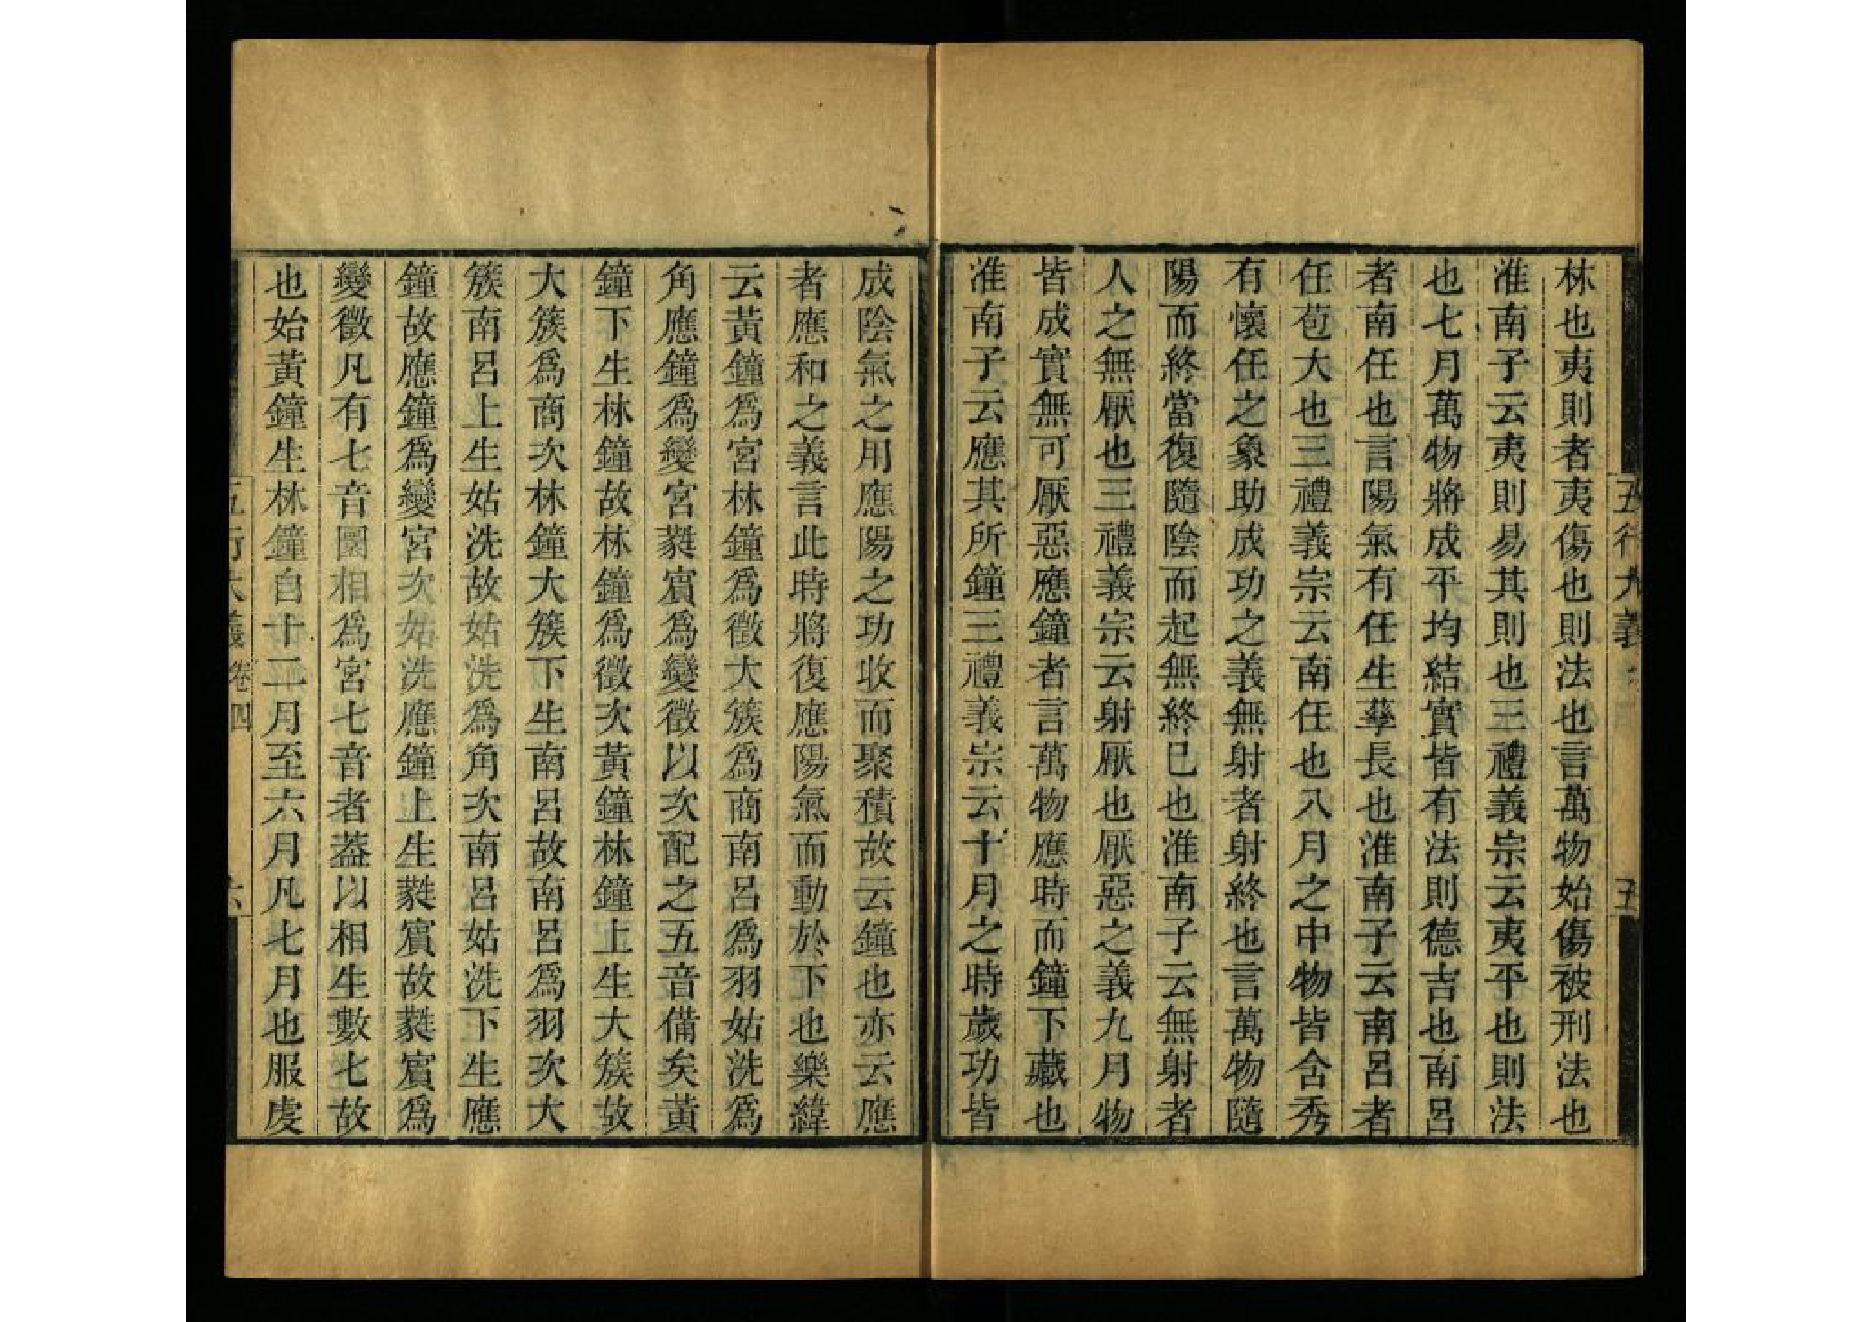 五行大義
五
林也夷則者夷傷也則法也言萬物始傷被刑法也
淮南子云夷則易其則也三禮義宗云夷平也則法
也七月萬物將成平均結實皆有法則德吉也南呂
者南任也言陽氣有任生孳長也淮南子云南呂者
任苞大也三禮義宗云南任也八月之中物皆含秀
有懷任之象助成功之義無射者射終也言萬物隨
陽而終當復隨陰而起無終已也淮南子云無射者
人之無厭也三禮義宗云射厭也厭惡之義九月物
皆成實無可厭惡應鐘者言萬物應時而鐘下藏也
淮南子云應其所鐘三禮義宗云十月之時歲功皆
成陰氣之用應陽之功收而聚積故云鐘也亦云應
者應和之義言此時將復應陽氣而動於下也樂緯
云黃鐘為宮林鐘為徵大簇為商南呂為羽姑洗為
角應鐘為變宮蕤賓為變徵以次配之五音備矣黃
鐘下生林鐘故林鐘爲徵次黃鐘林鐘上生大簇故
大簇爲商次林鐘大簇下生南呂故南呂爲羽次大
簇南呂上生姑洗故姑洗爲角次南呂姑洗下生應
鐘故應鐘爲變宮次姑洗應鐘上生蕤賓故蕤賓爲
變徵凡有七音圜相爲宮七音者葢以相生數七故
也始黃鐘生林鐘自十二月至六月凡七月也服虔
五行大義卷四
六